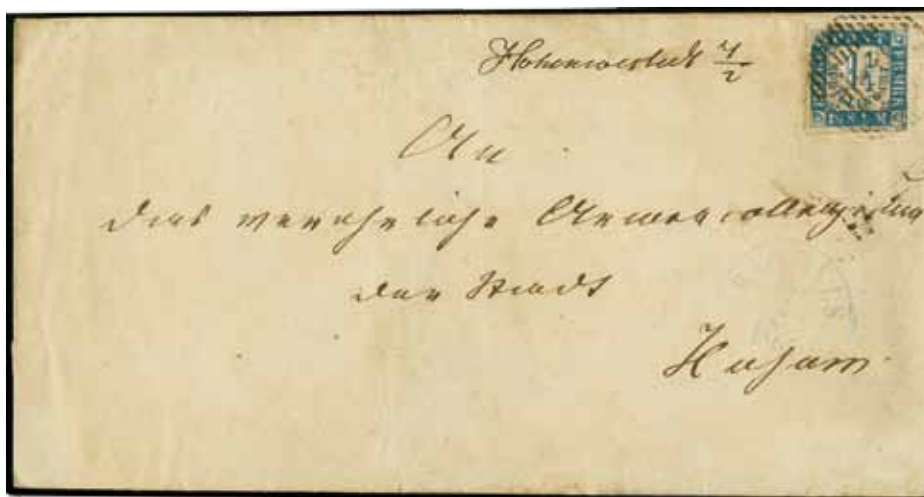 Hohenwestedt 7/2
POST
1¼
An
das verehrliche Armencollegium
der Stadt
Husum